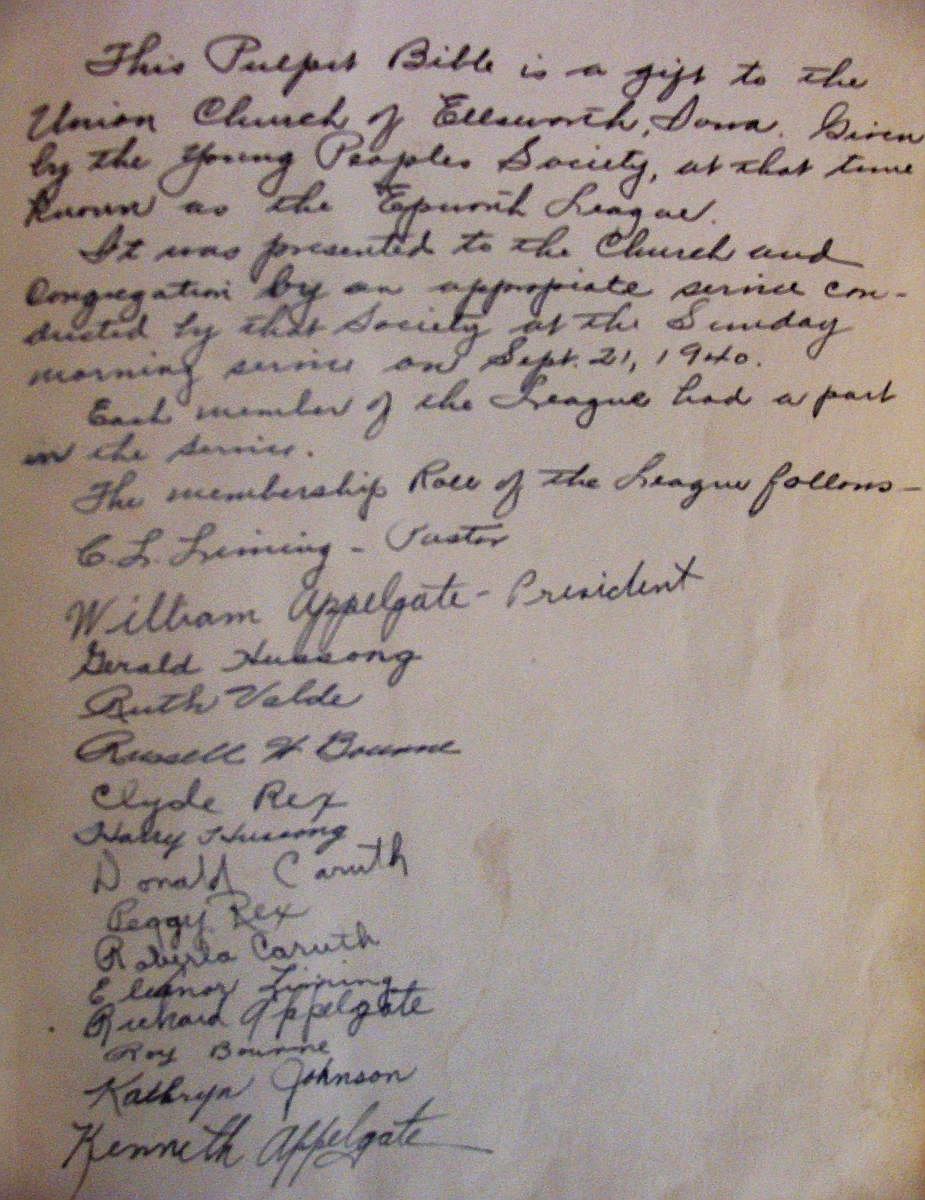 This Pulpit Bible is a gift to the
Union Church of Ellsworth, Iowa. Given
by the Young Peoples Society, at that time
known as the Epworth League.
It was presented to the Church and
Congregation by an appropiate service con-
ducted by that Society at the Sunday
morning service on Sept. 21, 1940.
Each member of the League had a part
in the service.
The membership Role of the League follows -
C. L. Liming - Pastor
William Appelgate - President
Gerald Hussong
Ruth Valde
Russell H Bourne
Clyde Rex
Harry Hussong
Donald Caruth
Peggy Rex
Roberta Caruth
Eleanor Liming
Richard Appelgate
Roy Bourne
Kathryn Johnson
Kenneth Appelgate